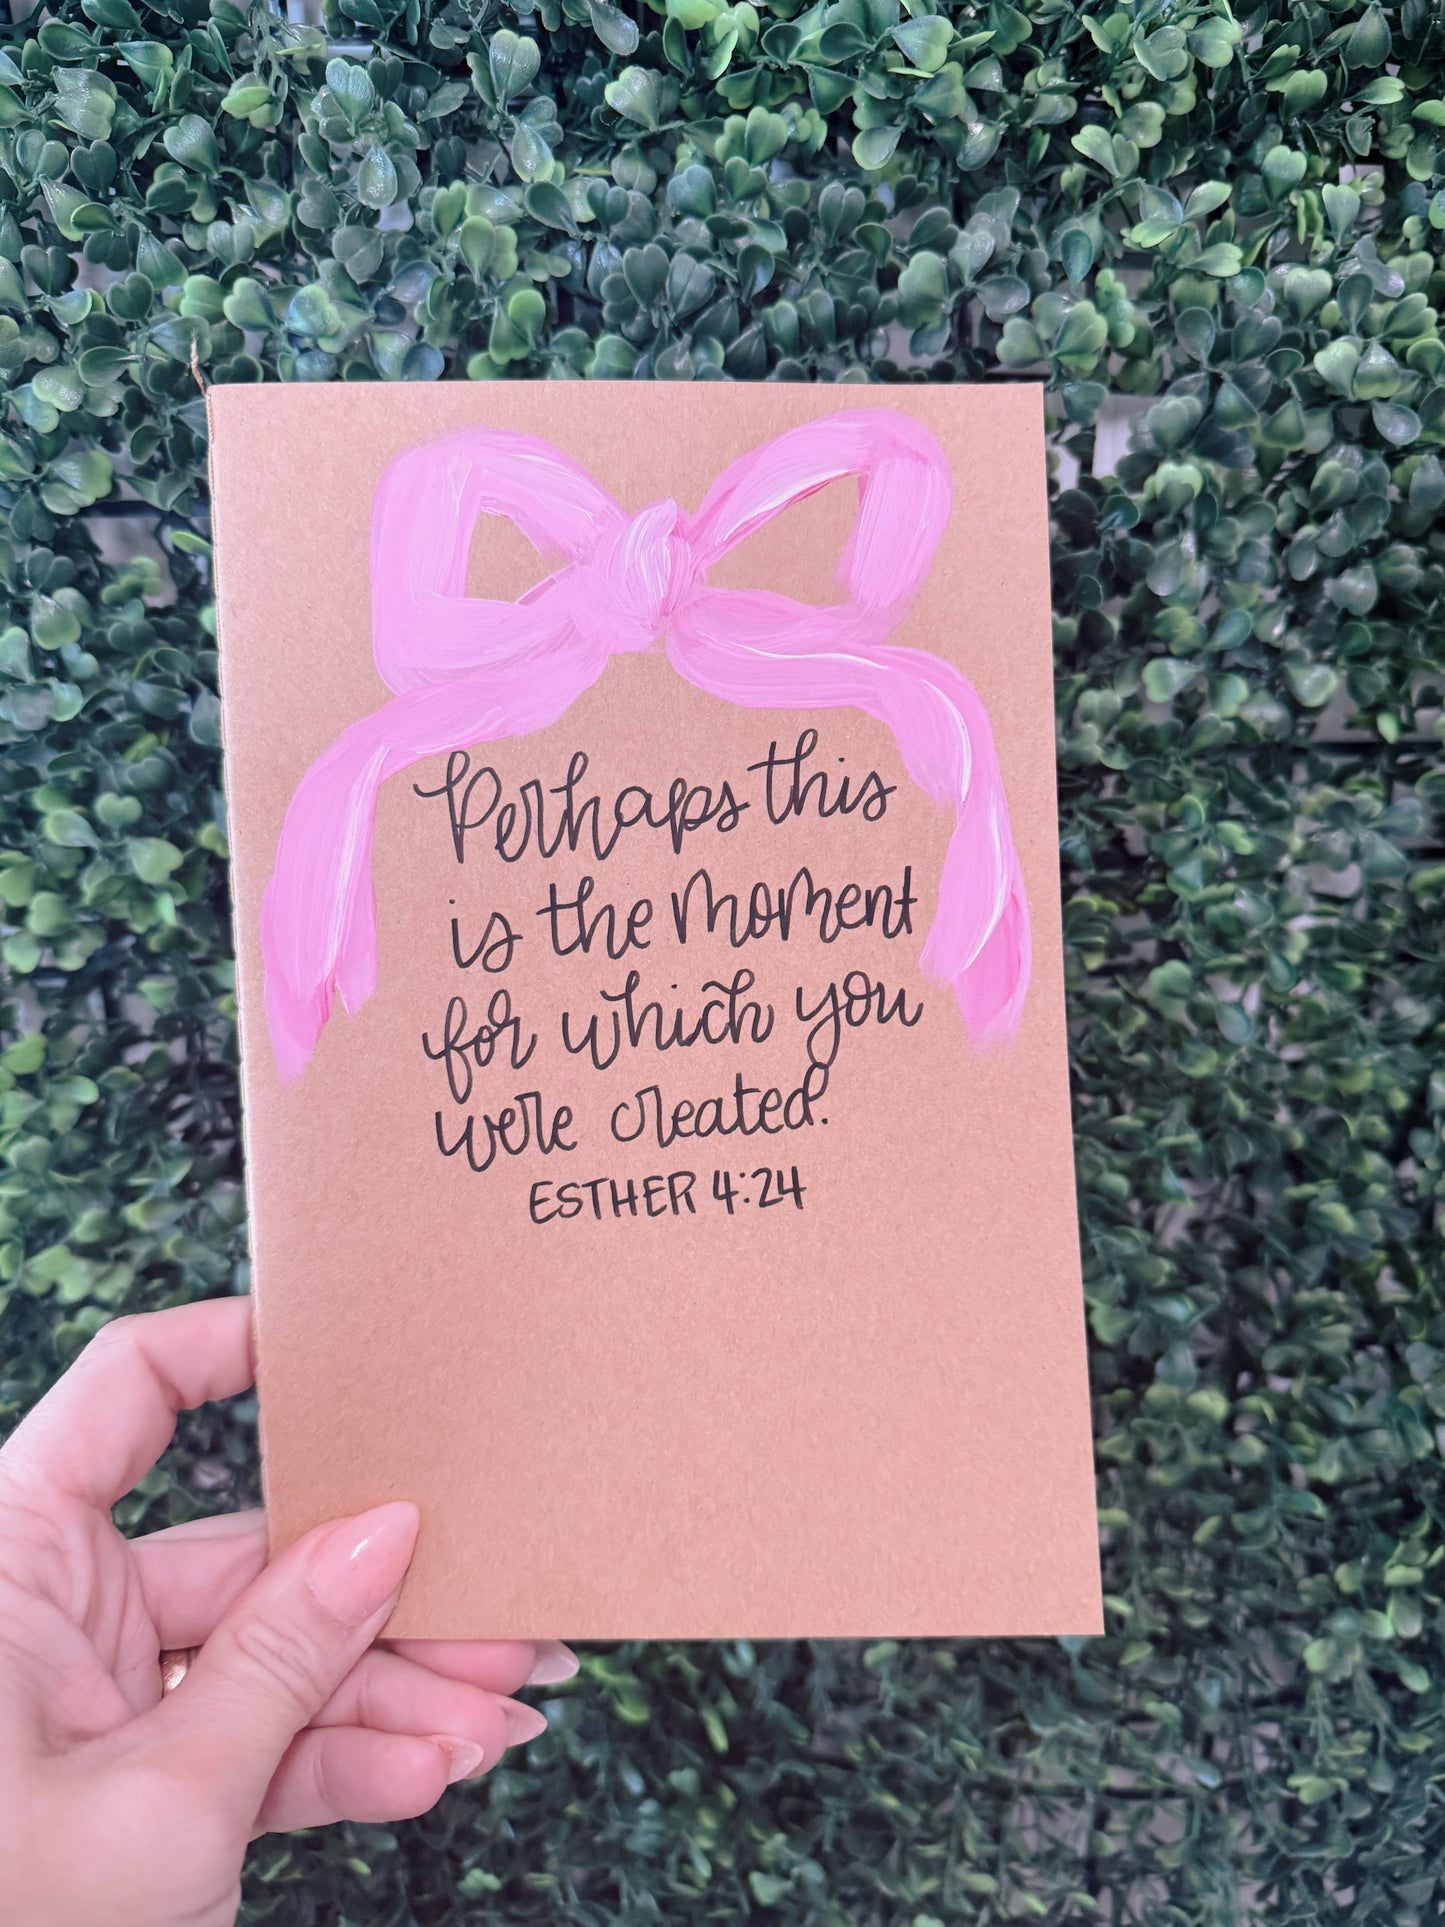 Perhaps this
is the moment
for which you
were created.
ESTHER 4:24